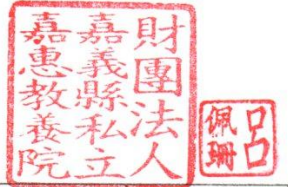 財團法人
嘉義縣私立
嘉惠教養院
呂
佩珊